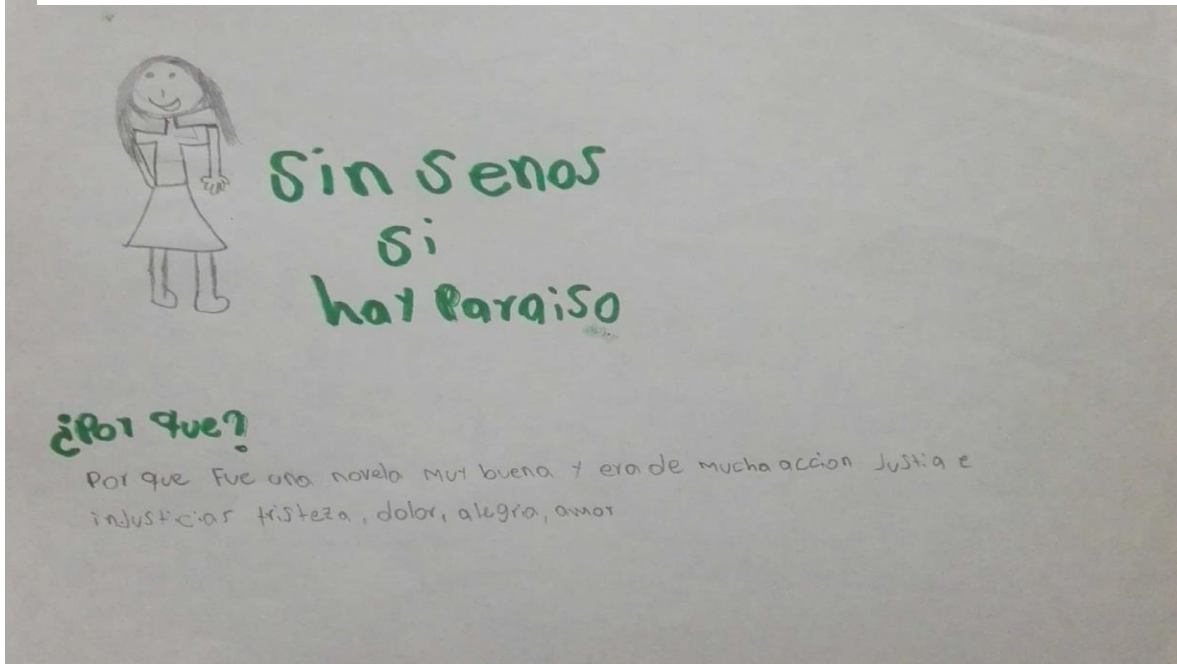 Sin Senos
Si
hay Paraiso
¿Por que?
Por que Fue una novela muy buena y era de mucha accion Justia e
injusticias tristeza, dolor, alegria, amor